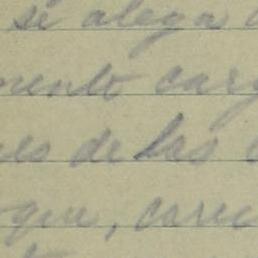 si alega
mento carg
es de las
que, carec